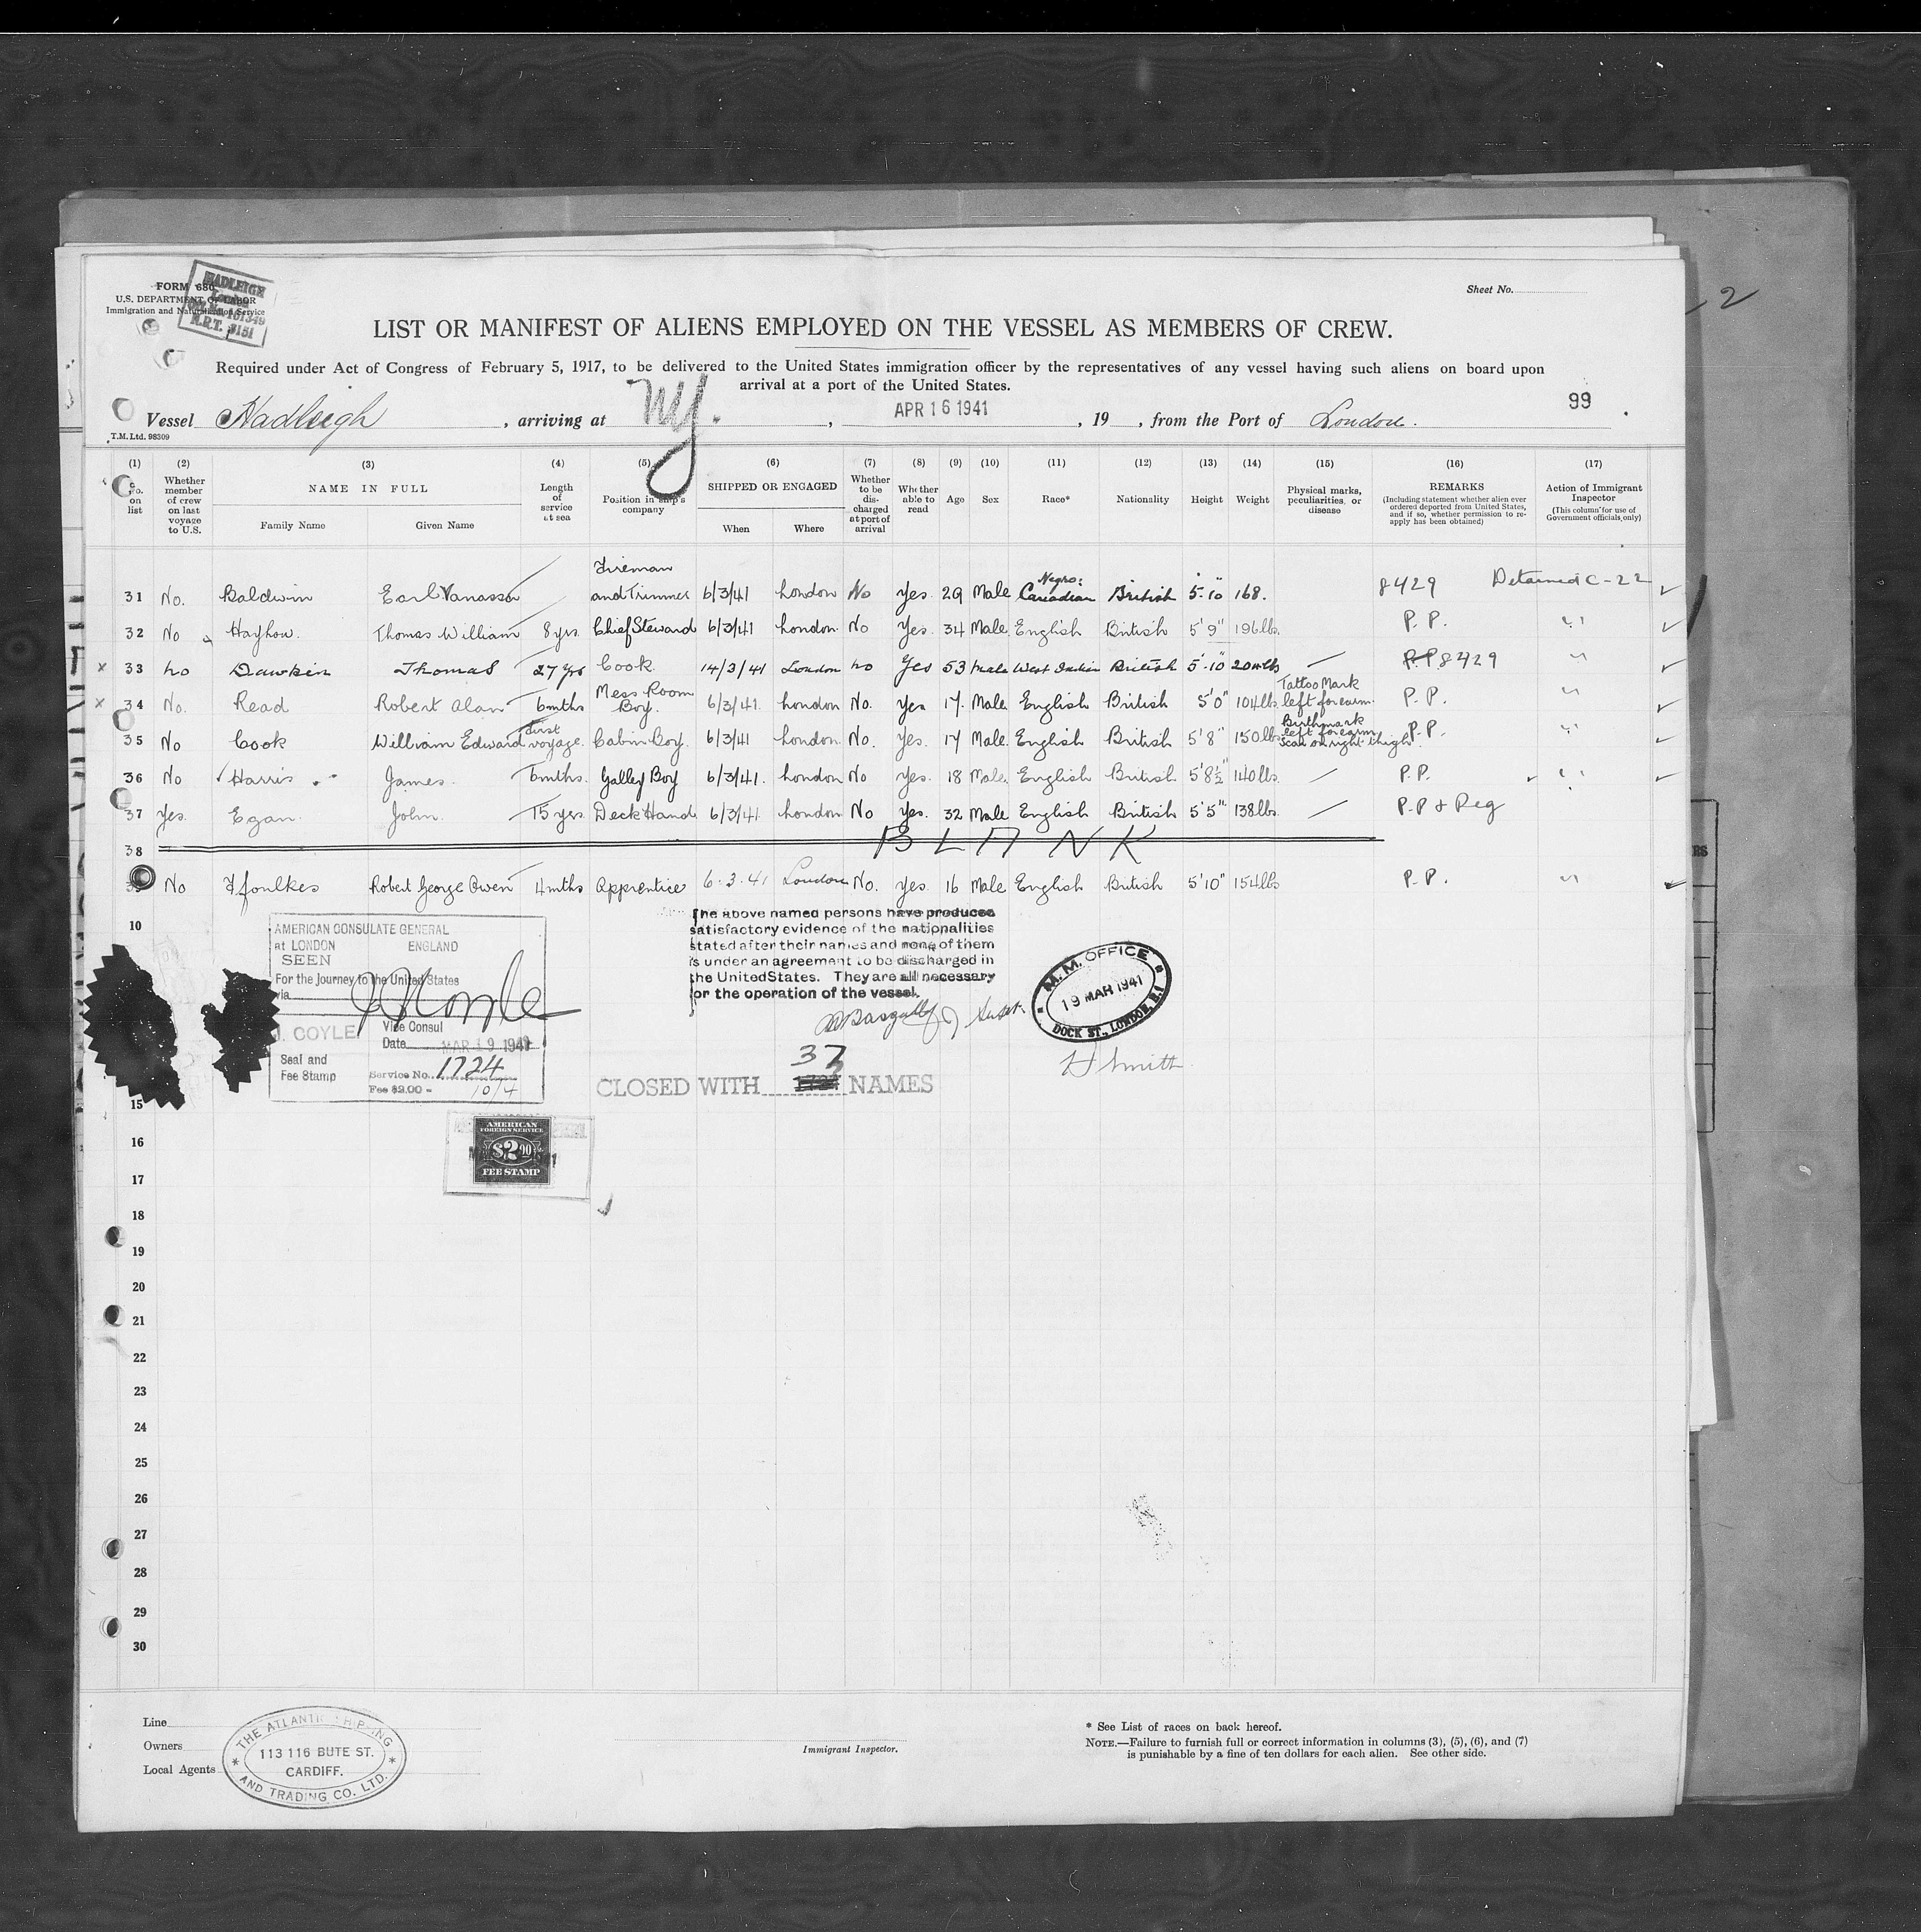 FORM 680
U.S. DEPARTMENT OF LABOR
Immigration and Naturalization Service
HADLEIGH
London
161349
N.R.T. 3151
Sheet No.
2
LIST OR MANIFEST OF ALIENS EMPLOYED ON THE VESSEL AS MEMBERS OF CREW.
Required under Act of Congress of February 5, 1917, to be delivered to the United States immigration officer by the representatives of any vessel having such aliens on board upon
arrival at a port of the United States.
99
Vessel Hadleigh, arriving at NY., APR 16 1941, 19 , from the Port of London.
T.M. Ltd. 98309
(1) No. on list
(2) Whether member of crew on last voyage to U.S.
(3) NAME IN FULL Family Name Given Name
(4) Length of service at sea
(5) Position in ship's company
(6) SHIPPED OR ENGAGED When Where
(7) Whether to be discharged at port of arrival
(8) Whether able to read
(9) Age
(10) Sex
(11) Race*
(12) Nationality
(13) Height
(14) Weight
(15) Physical marks, peculiarities, or disease
(16) REMARKS (Including statement whether alien ever ordered deported from United States, and if so, whether permission to re-apply has been obtained)
(17) Action of Immigrant Inspector (This column for use of Government officials only)
31 No. Baldwin Earl Vanassa Fireman and Trimmer 6/3/41 London No Yes 29 Male Negro: Canadian British 5-10" 168. 8429 Detained C-22
32 No Hayhow. Thomas William 8 yrs. Chief Steward 6/3/41 London. No Yes. 34 Male English British 5'9" 196 lbs. P.P. "
x 33 no Dawkin Thomas 27 yrs Cook. 14/3/41 London no Yes 53 male West Indian British 5'-10" 204 lbs — P.P 8429 "
x 34 No. Read Robert Alan 6 mths Mess Room Boy. 6/3/41. London No. Yes 17. Male English British 5'0" 104 lbs. Tattoo Mark left forearm. P.P. "
35 No Cook William Edward first voyage. Cabin Boy. 6/3/41 London No. Yes. 17 Male. English British 5'8" 150 lbs. Birthmark left forearm Scar on right thigh P.P. "
36 No Harris James. 6 mths. Galley Boy 6/3/41. London No Yes. 18 Male English British 5'8½" 140 lbs. — P.P. "
37 Yes. Egan. John. 15 yrs. Deck Hand. 6/3/41. London No Yes. 32 Male English British 5'5" 138 lbs — P.P & Reg
38 BLANK
39 No Ffoulkes Robert George Owen 4 mths Apprentice 6.3.41 London No. Yes 16 Male English British 5'10" 154 lbs P.P. "
10
AMERICAN CONSULATE GENERAL
at LONDON ENGLAND
SEEN
For the Journey to the United States
via
J. COYLE
Vice Consul
Date MAR 19 1941
Seal and
Fee Stamp
Service No. 1724
Fee $2.00 = 10/4
The above named persons have produced
satisfactory evidence of the nationalities
stated after their names and none of them
is under an agreement to be discharged in
the United States. They are all necessary
for the operation of the vessel.
M.M. OFFICE
19 MAR 1941
DOCK ST., LONDON, E.1
H Smith
CLOSED WITH 37 NAMES
AMERICAN
FOREIGN SERVICE
$2.00
FEE STAMP
15
16
17
18
19
20
21
22
23
24
25
26
27
28
29
30
Line
Owners
Local Agents
THE ATLANTIC SHIPPING
113 116 BUTE ST.
CARDIFF.
AND TRADING CO. LTD.
Immigrant Inspector.
* See List of races on back hereof.
NOTE.—Failure to furnish full or correct information in columns (3), (5), (6), and (7)
is punishable by a fine of ten dollars for each alien. See other side.